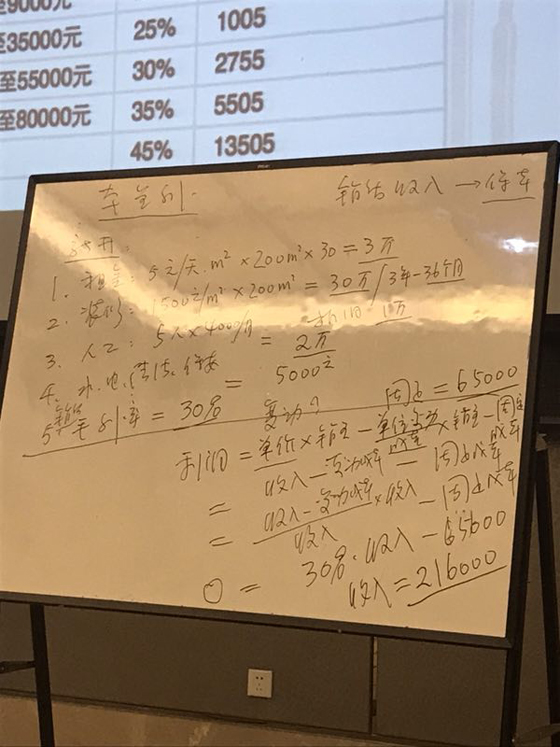 至9000元
至35000元 25% 1005
至55000元 30% 2755
至80000元 35% 5505
45% 13505
本量利
销售收入→保本
费用:
1. 租金: 5元/天.m² × 200m² × 30 = 3万
2. 装修: 1500元/m² × 200m² = 30万/3年-36个月
3. 人工: 5人×4000/月 = 2万 折旧 1万
4. 水、电、 = 5000元
5 销售毛利率 = 30% 变动? 固定=65000
利润 = 单价×销量-单位变动成本×销量-固定成本
= 收入-变动成本-固定成本
= 收入-变动成本/收入×收入-固定成本
0 = 30%·收入-65000
收入=216000